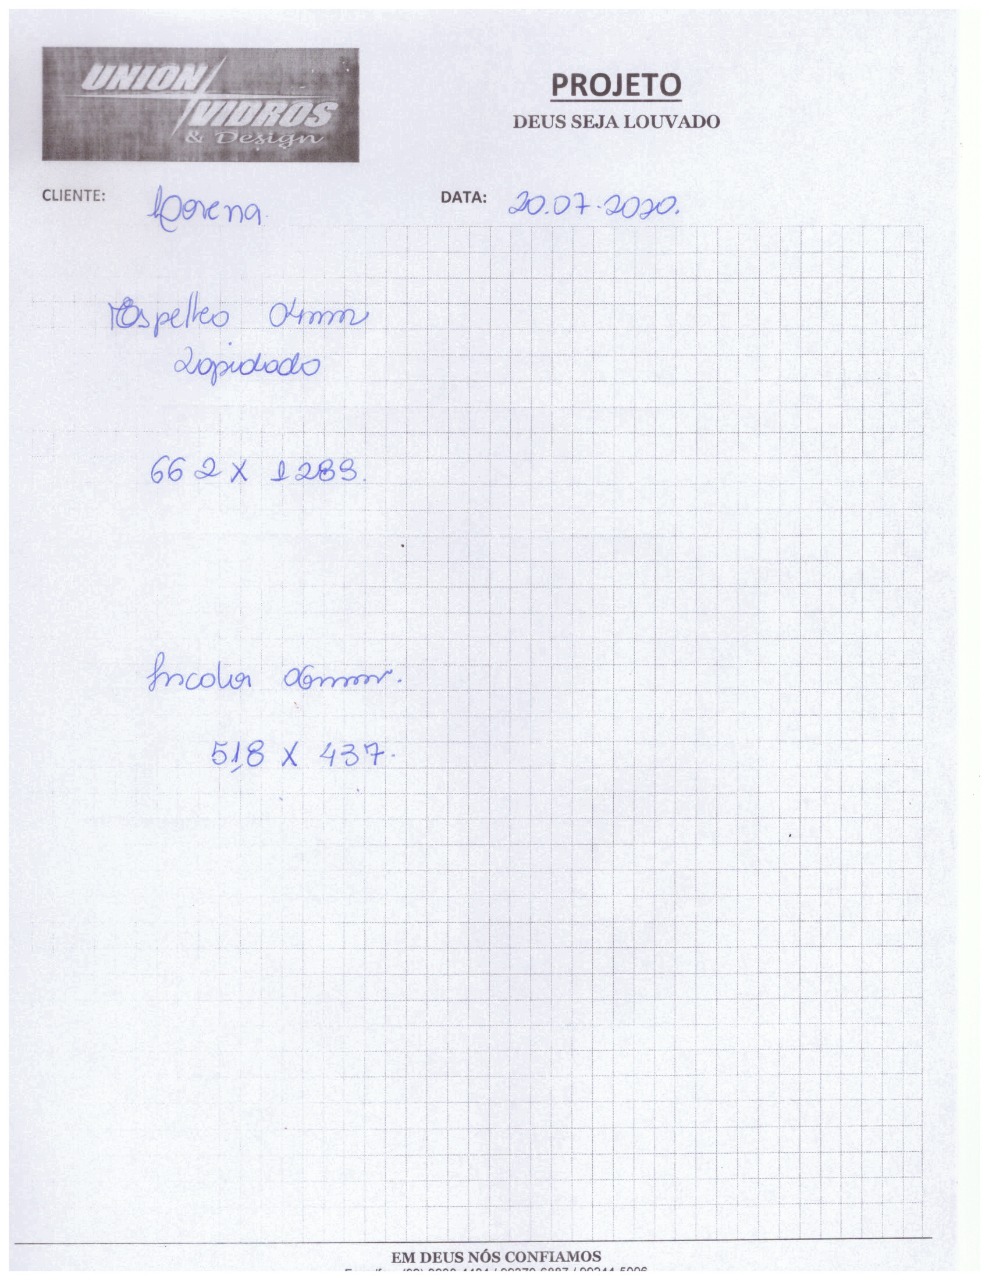 UNION
VIDROS
& Design
PROJETO
DEUS SEJA LOUVADO
CLIENTE: Lorena
DATA: 20.07.2020.
Espelho 04mm
Lapidado
662 X 1289.
Incolor 06mm.
518 X 437.
EM DEUS NÓS CONFIAMOS